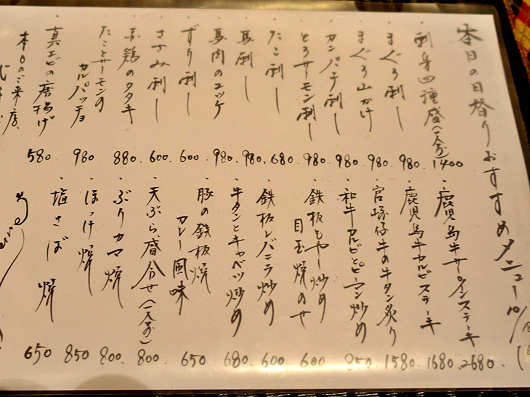 本日の日替りおすすめメニュー 10/
・刺身四種盛(一人前) 1400
・まぐろ刺し 980
・まぐろ山かけ 980
・カンパチ刺し 980
・とろサーモン刺し 980
・たこ刺し 680
・馬刺し 980
・馬肉のユッケ 980
・ずり刺し 600
・ささみ刺し 600
・赤鶏のタタキ 880
・たことサーモンのカルパッチョ 980
・真エビの唐揚げ 580
本日のご来店
・鹿児島牛サーロインステーキ 2680
・鹿児島牛カルビステーキ 1680
・宮崎仔牛の牛タン炙り 1580
・和牛カルビとピーマン炒め 950
・鉄板もやし炒め目玉焼のせ 600
・鉄板レバニラ炒め 600
・牛タンとキャベツ炒め 680
・豚の鉄板焼カレー風味 650
・天ぷら盛合せ(一人前) 800
・ぶりカマ焼 800
・ほっけ焼 850
・塩さば焼 650